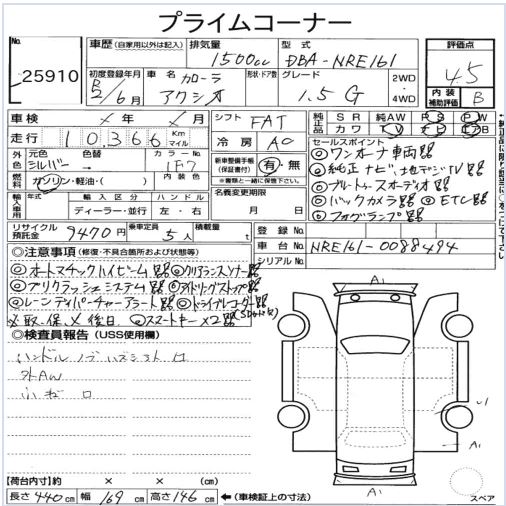 プライムコーナー
No.
25910
車歴 (自家用以外は記入)
排気量 1500cc
型式 DBA-NRE161
評価点 4.5
初度登録年月 2/6月
車名 カローラ アクシオ
形状・ドア数
グレード 1.5 G
2WD
4WD
内装補助評価 B
車検 × 年 × 月
シフト FAT
純正品 SR 純AW PS PW
カワ TV ナビ エアB
走行 10,366 Km マイル
冷房 AC
セールスポイント
外色 元色 色替 シルバー
カラーNo. 1F7
新車整備手帳 (保証書付) 有・無
※書類と一緒に保管して下さい。
◎ワンオーナー車両
◎純正ナビ、地デジTV
◎ブルートゥースオーディオ
◎バックカメラ ◎ETC
◎フォグランプ
燃料 ガソリン・軽油・( )
輸入車用 年式 輸入区分 ハンドル
ディーラー・並行 左・右
名義変更期限
月 日
リサイクル預託金 9470円
乗車定員 5人
積載量 t
登録No.
車台No. NRE161-0088494
シリアルNo.
◎注意事項 (修復・不具合箇所および状態等)
◎オートマチックハイビーム ◎クリアランスソナー
◎プリクラッシュシステム ◎アイドリングストップ
◎レーンディパーチャーアラート ◎ドライブレコーダー
※取・保、× 後日 ◎スマートキー×2
◎検査員報告 (USS使用欄)
外AW
A1
A1
A1
スペア
【荷台内寸】約 × × (cm)
長さ 440cm 幅 169cm 高さ 146cm ←(車検証上の寸法)